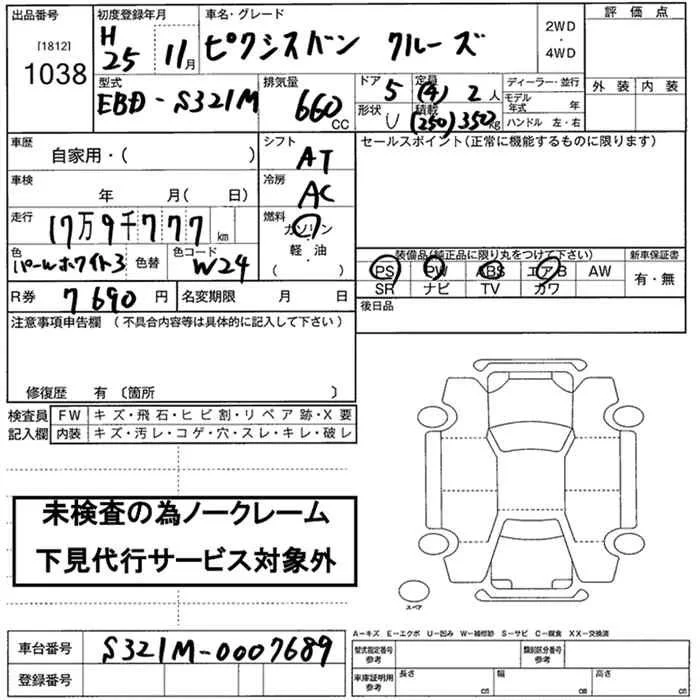 出品番号 初度登録年月 車名・グレード 評価点
[1812]
1038
H25 11月 ピクシスバン クルーズ
2WD・4WD
外装 内装
型式 排気量 ドア 定員 ディーラー・並行
EBD-S321M 660CC 5 (4) 2人
形状 積載 モデル年式 年
U (250) 350kg ハンドル 左・右
車歴 シフト セールスポイント(正常に機能するものに限ります)
自家用・( ) AT
車検 冷房
年 月( 日) AC
走行 燃料
17万9千777km ガソリン
軽・油
・( )
色 色替 色コード
パールホワイト3 W24
装備品(純正品に限り丸をつけて下さい) 新車保証書
PS PW ABS エアB AW 有・無
SR ナビ TV カワ
R券 7690円 名変期限 月 日 後日品
注意事項申告欄 (不具合内容等は具体的に記入して下さい)
修復歴 有 〔箇所 〕
検査員記入欄
FW キズ・飛石・ヒビ割・リペア跡・X要
内装 キズ・汚レ・コゲ・穴・スレ・キレ・破レ
未検査の為ノークレーム
下見代行サービス対象外
スペア
A-キズ E-エクボ U-凹み W-補修跡 S-サビ C-腐食 XX-交換済
車台番号 S321M-0007689
型式指定番号 参考 類別区分番号 参考
登録番号
車庫証明用 参考 長さ cm 幅 cm 高さ cm